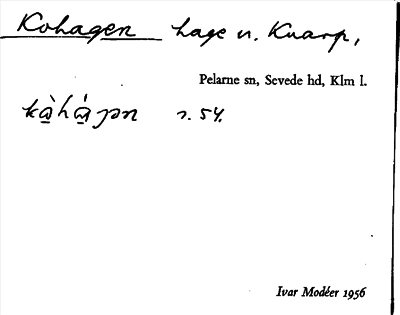 Kohagen hage n. Knarp,
Pelarne sn, Sevede hd, Klm l.
s. 54.
Ivar Modéer 1956